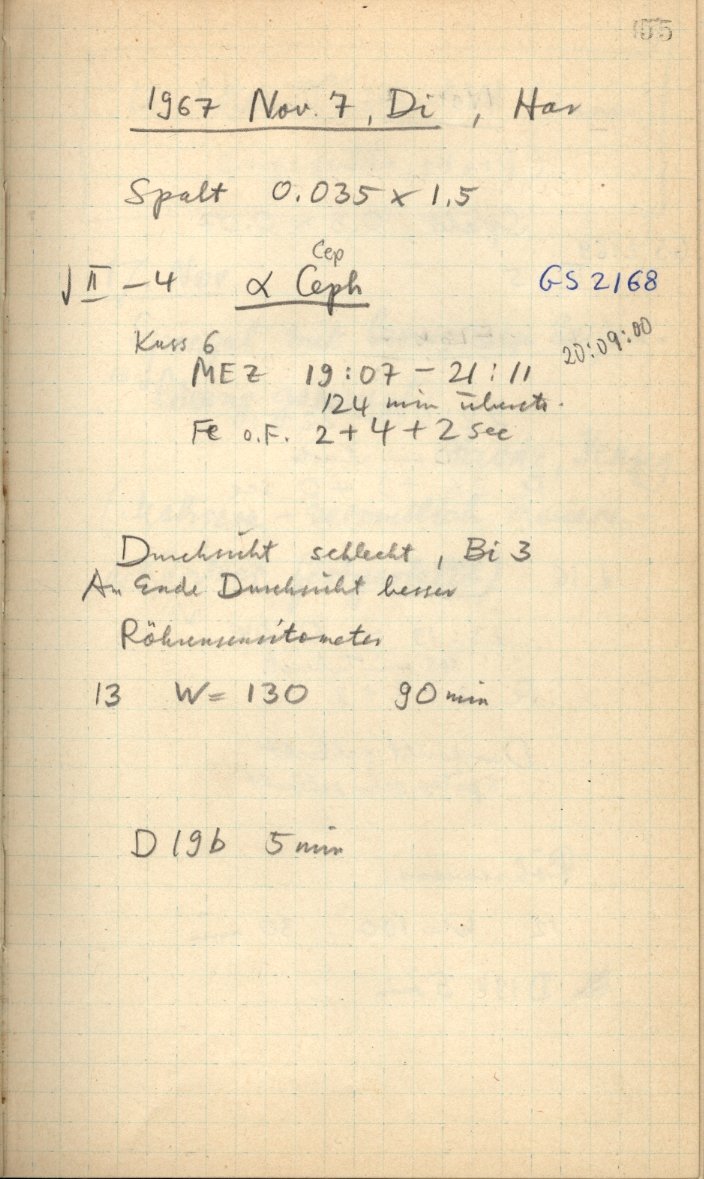 55
1967 Nov. 7, Di, Har
Spalt 0.035 × 1,5
Cep
II – 4 α Ceph GS 2168
20:09:00
Kass 6
MEZ 19:07 – 21:11
124 min übersetz.
Fe o.F. 2 + 4 + 2 sec
Durchsicht schlecht, Bi 3
Am Ende Durchsicht besser
Röhrensensitometer
13 W = 130 90 min
D 19b 5 min